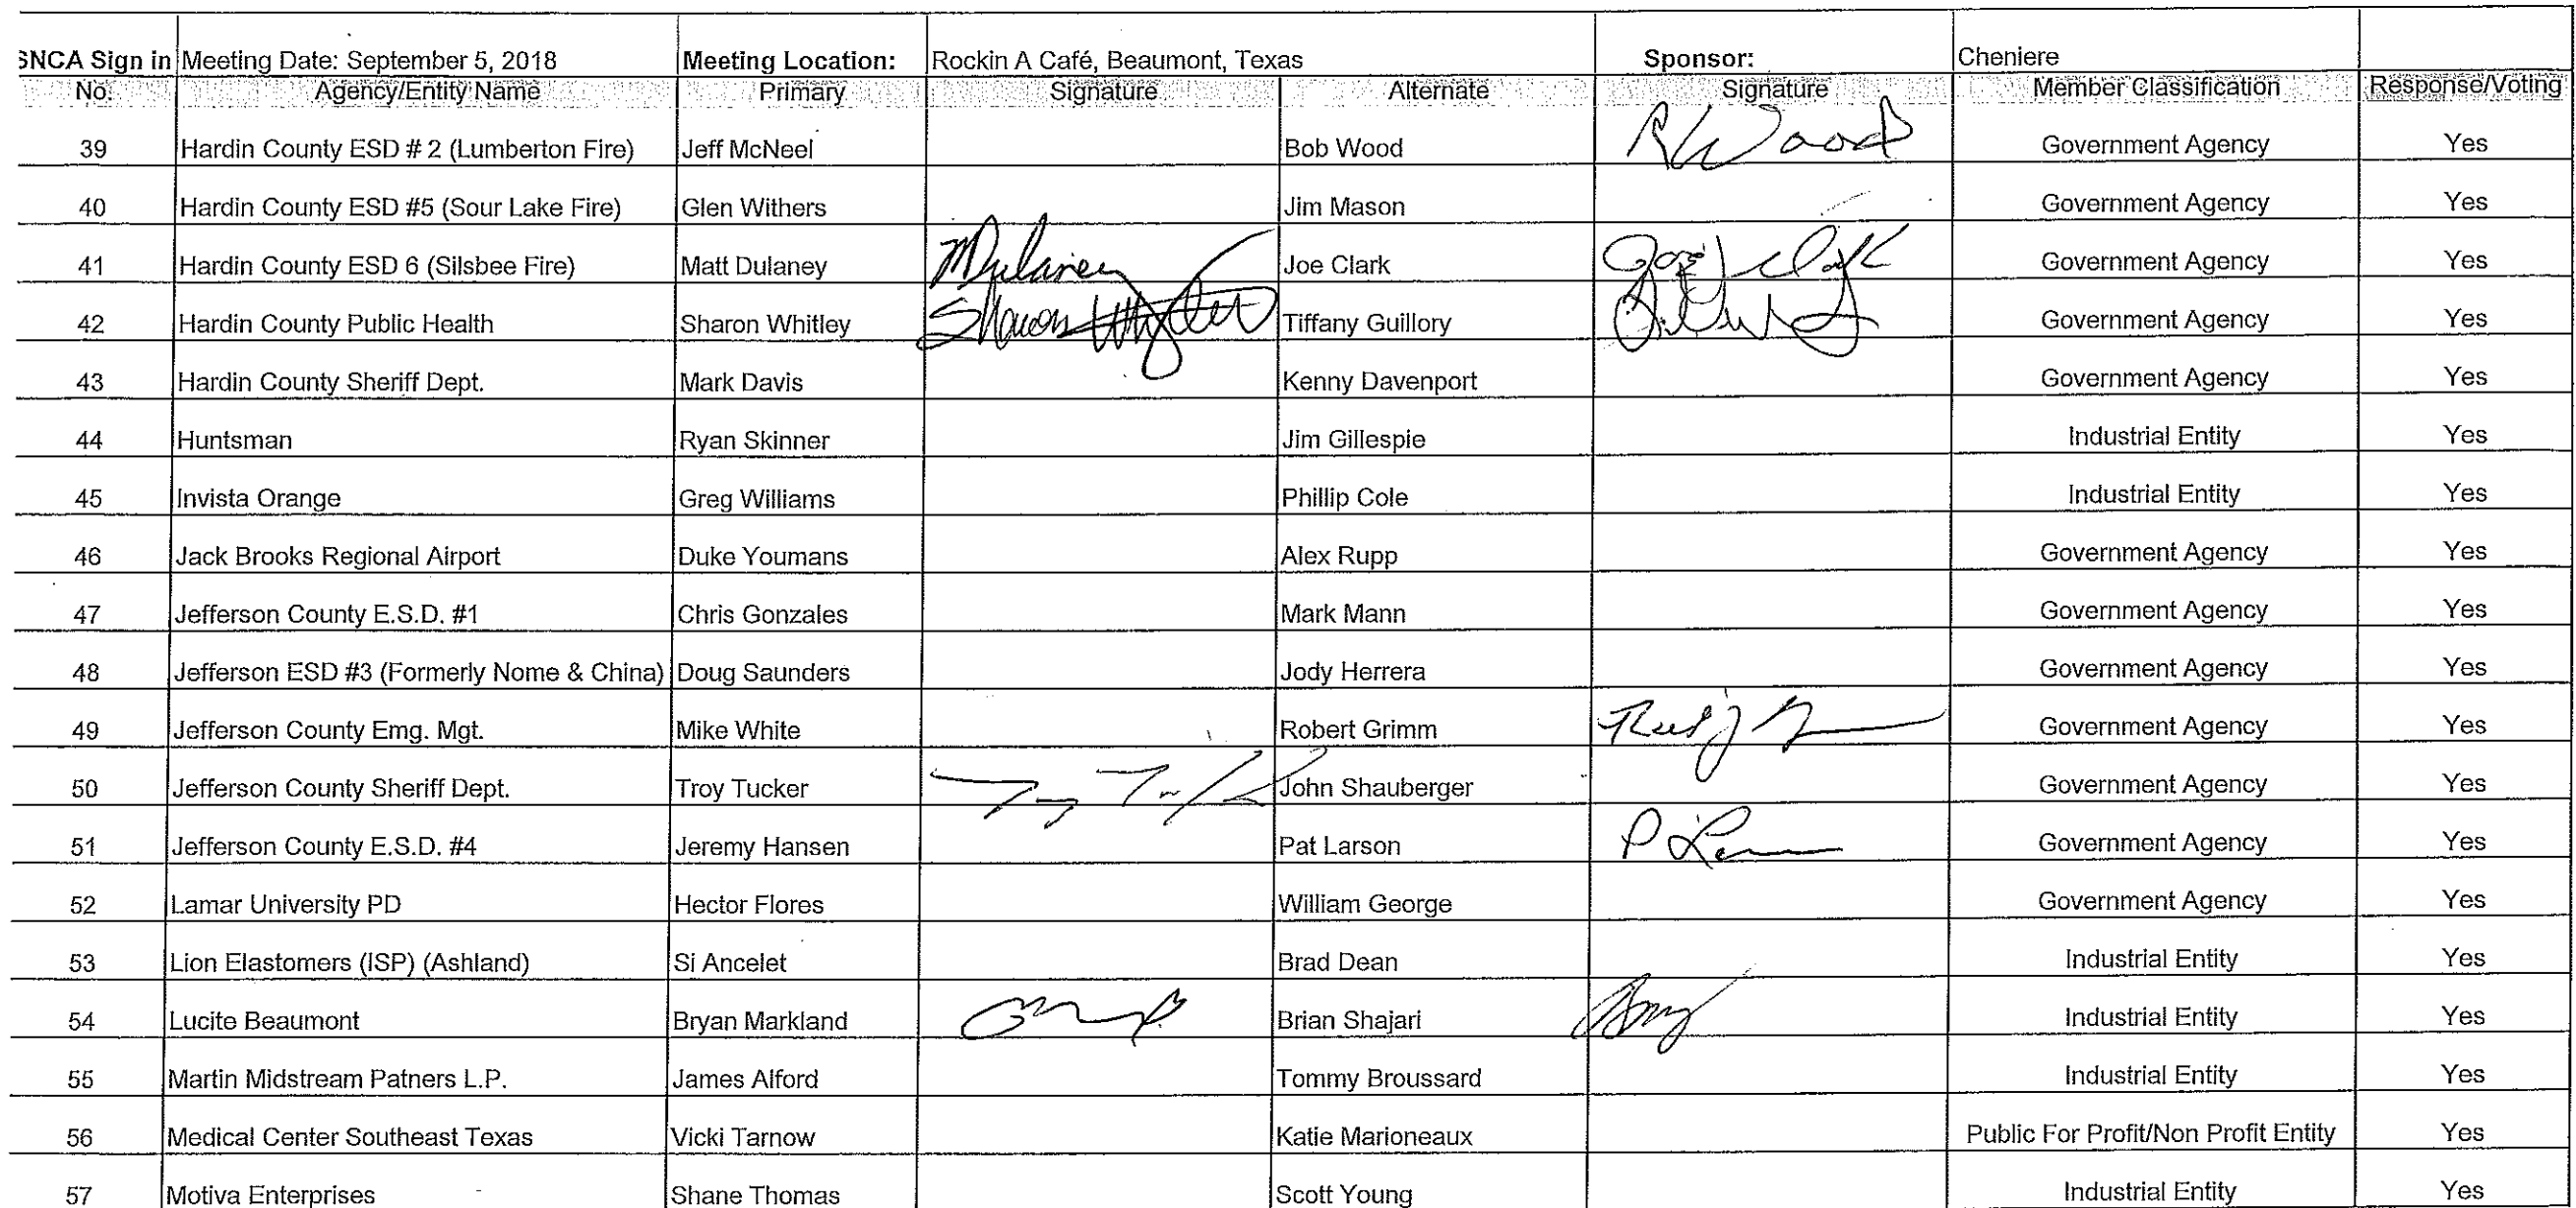 SNCA Sign in Meeting Date: September 5, 2018 Meeting Location: Rockin A Café, Beaumont, Texas Sponsor: Cheniere
No. Agency/Entity Name Primary Signature Alternate Signature Member Classification Response/Voting
39 Hardin County ESD # 2 (Lumberton Fire) Jeff McNeel Bob Wood R Wood Government Agency Yes
40 Hardin County ESD #5 (Sour Lake Fire) Glen Withers Jim Mason Government Agency Yes
41 Hardin County ESD 6 (Silsbee Fire) Matt Dulaney MDulaney Joe Clark Joe Clark Government Agency Yes
42 Hardin County Public Health Sharon Whitley Sharon Whitley Tiffany Guillory Government Agency Yes
43 Hardin County Sheriff Dept. Mark Davis Kenny Davenport Government Agency Yes
44 Huntsman Ryan Skinner Jim Gillespie Industrial Entity Yes
45 Invista Orange Greg Williams Phillip Cole Industrial Entity Yes
46 Jack Brooks Regional Airport Duke Youmans Alex Rupp Government Agency Yes
47 Jefferson County E.S.D. #1 Chris Gonzales Mark Mann Government Agency Yes
48 Jefferson ESD #3 (Formerly Nome & China) Doug Saunders Jody Herrera Government Agency Yes
49 Jefferson County Emg. Mgt. Mike White Robert Grimm Government Agency Yes
50 Jefferson County Sheriff Dept. Troy Tucker John Shauberger Government Agency Yes
51 Jefferson County E.S.D. #4 Jeremy Hansen Pat Larson Government Agency Yes
52 Lamar University PD Hector Flores William George Government Agency Yes
53 Lion Elastomers (ISP) (Ashland) Si Ancelet Brad Dean Industrial Entity Yes
54 Lucite Beaumont Bryan Markland Brian Shajari Industrial Entity Yes
55 Martin Midstream Patners L.P. James Alford Tommy Broussard Industrial Entity Yes
56 Medical Center Southeast Texas Vicki Tarnow Katie Marioneaux Public For Profit/Non Profit Entity Yes
57 Motiva Enterprises Shane Thomas Scott Young Industrial Entity Yes